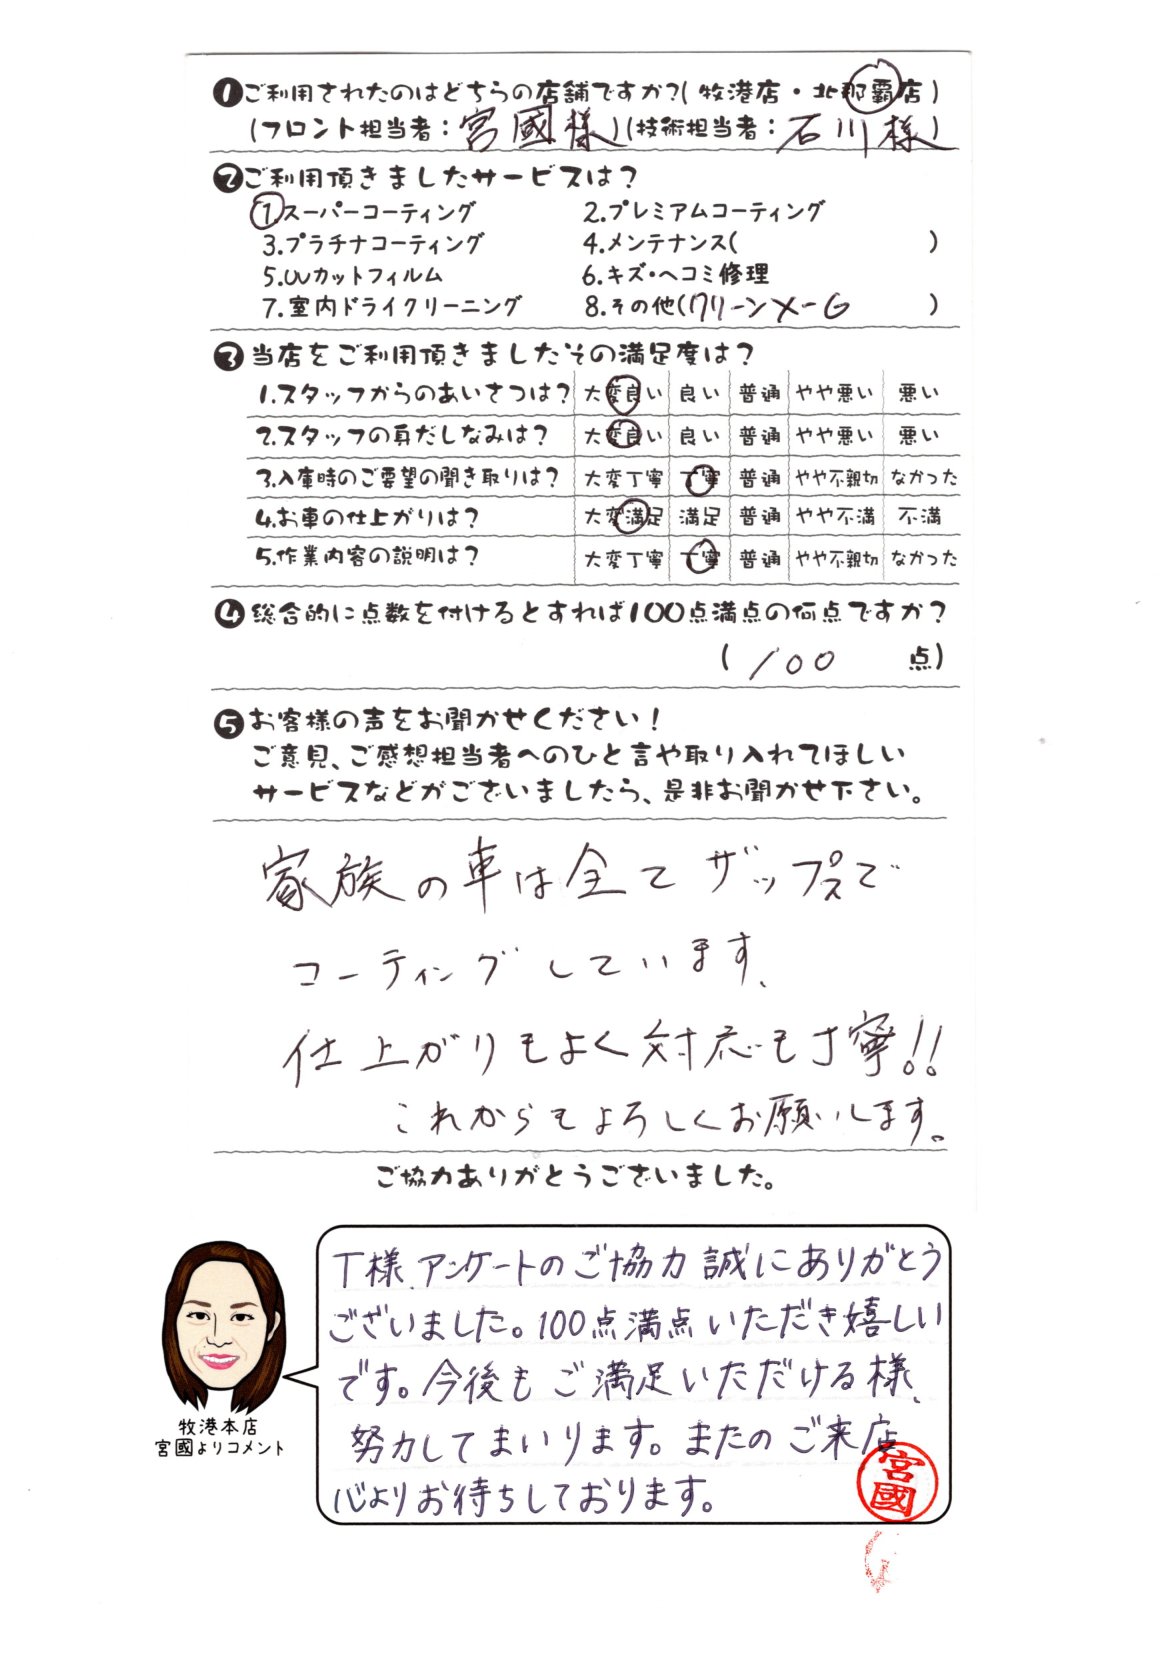 ❶ご利用されたのはどちらの店舗ですか?(牧港店・北那覇店)
(フロント担当者：宮國様)(技術担当者：石川様)
❷ご利用頂きましたサービスは？
1.スーパーコーティング 2.プレミアムコーティング
3.プラチナコーティング 4.メンテナンス( )
5.UVカットフィルム 6.キズ・ヘコミ修理
7.室内ドライクリーニング 8.その他(クリーンメーG )
❸当店をご利用頂きましたその満足度は？
1.スタッフからのあいさつは? 大変良い 良い 普通 やや悪い 悪い
2.スタッフの身だしなみは？ 大変良い 良い 普通 やや悪い 悪い
3.入庫時のご要望の聞き取りは？ 大変丁寧 丁寧 普通 やや不親切 なかった
4.お車の仕上がりは？ 大変満足 満足 普通 やや不満 不満
5.作業内容の説明は？ 大変丁寧 丁寧 普通 やや不親切 なかった
❹総合的に点数を付けるとすれば100点満点の何点ですか？
( 100 点)
❺お客様の声をお聞かせください！
ご意見、ご感想担当者へのひと言や取り入れてほしい
サービスなどがございましたら、是非お聞かせ下さい。
家族の車は全てザップスで
コーティングしています、
仕上がりもよく対応も丁寧!!
これからもよろしくお願いします。
ご協力ありがとうございました。
T様、アンケートのご協力誠にありがとう
ございました。100点満点いただき嬉しい
です。今後もご満足いただける様、
努力してまいります。またのご来店
心よりお待ちしております。
宮國
牧港本店
宮國よりコメント